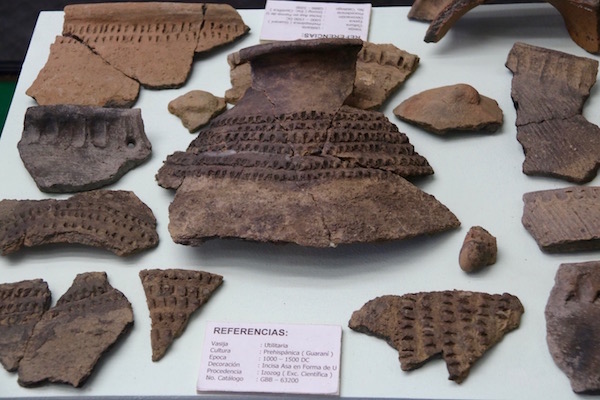 REFERENCIAS:
REFERENCIAS:
Vasija : Utilitaria
Cultura : Prehispánica ( Guaraní )
Epoca : 1000 - 1500 DC
Decoración : Incisa Asa en Forma de U
Procedencia : Izozog ( Exc. Científica )
No. Catálogo : GBB - 63200